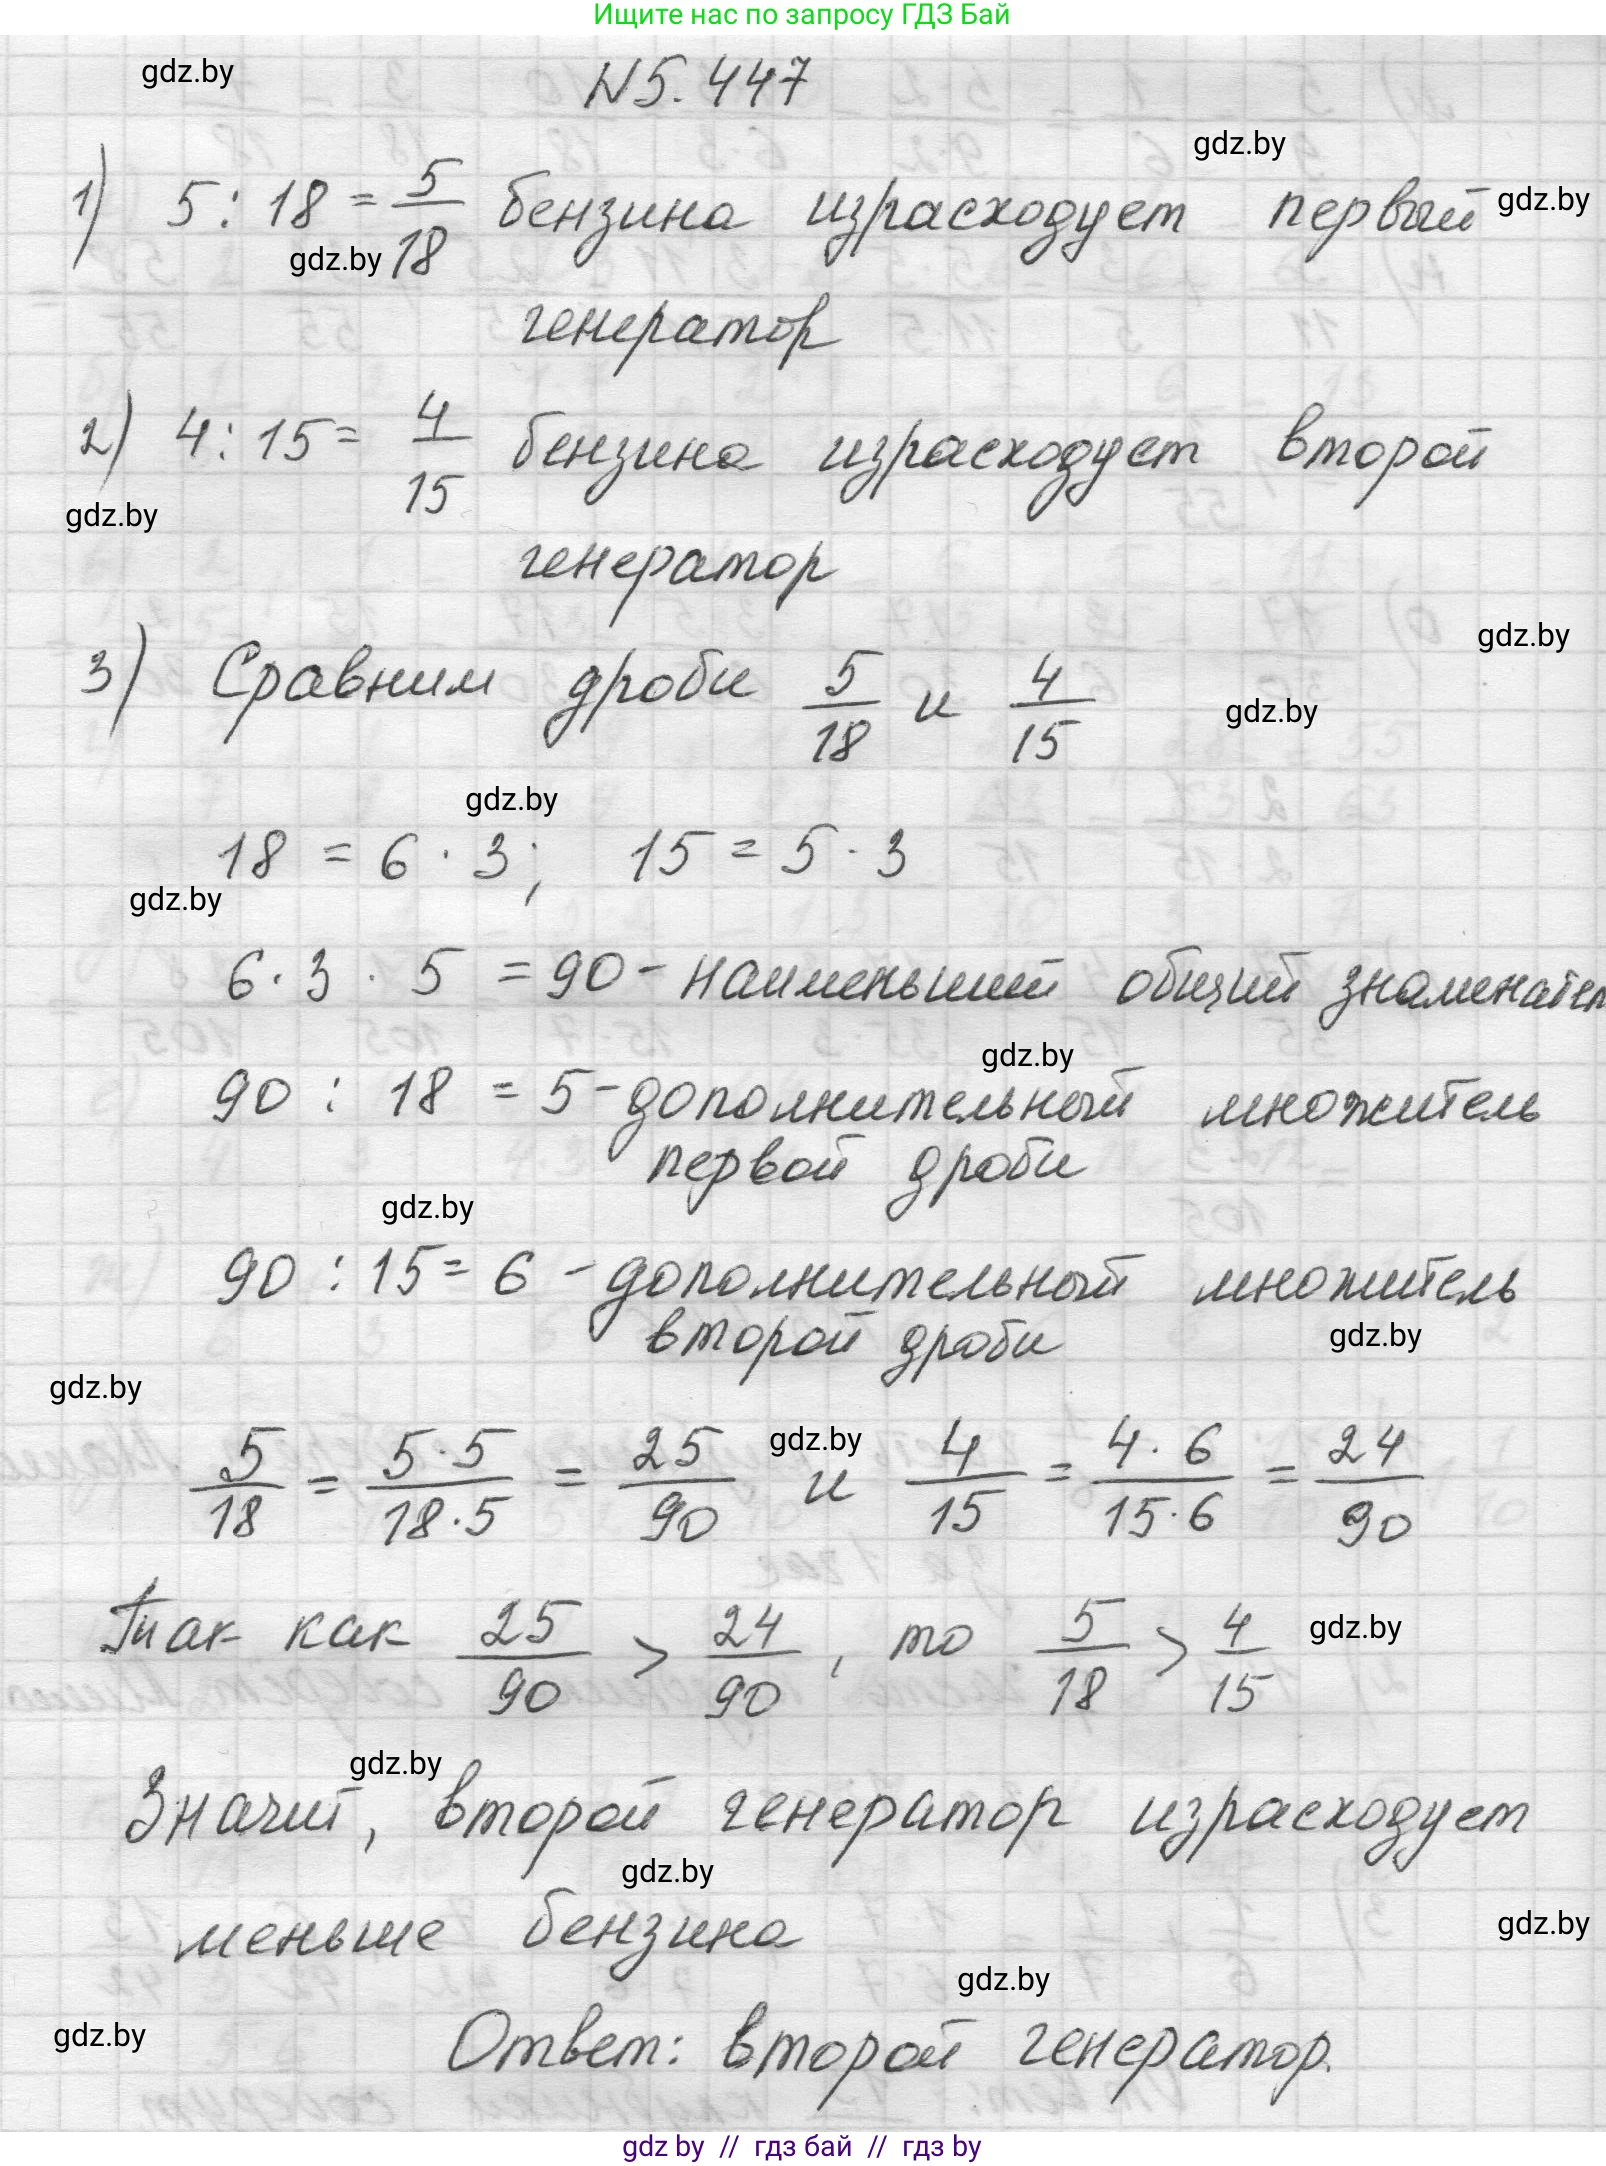 Ищите нас по запросу ГДЗ Бай
gdz.by
N5.447
gdz.by
1) 5 : 18 = 5/18 бензина израсходует первый gdz.by
gdz.by
генератор
2) 4 : 15 = 4/15 бензина израсходует второй
gdz.by
генератор
gdz.by
3) Сравним дроби 5/18 и 4/15 gdz.by
gdz.by
18 = 6 · 3; 15 = 5 · 3
gdz.by
6 · 3 · 5 = 90 - наименьший общий знаменател
gdz.by
90 : 18 = 5 - дополнительный множитель
первой дроби
gdz.by
90 : 15 = 6 - дополнительный множитель
второй дроби gdz.by
gdz.by
5/18 = 5·5/18·5 = 25/90 и 4/15 = 4·6/15·6 = 24/90
gdz.by
Так как 25/90 > 24/90, то 5/18 > 4/15 gdz.by
gdz.by
Значит, второй генератор израсходует
gdz.by
меньше бензина gdz.by
gdz.by
gdz.by
Ответ: второй генератор.
gdz by // гдз бай // гдз by